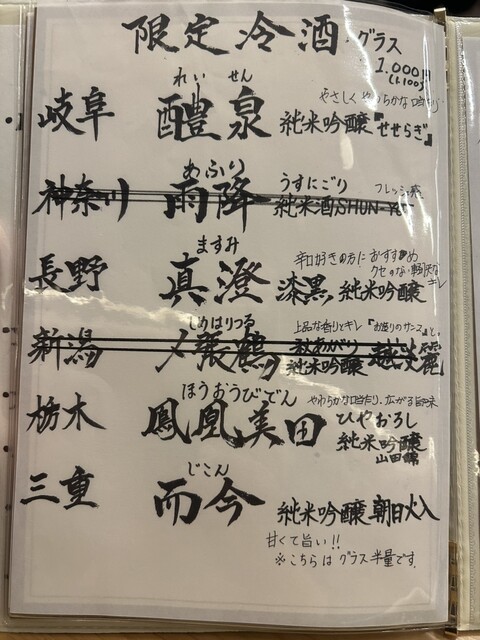 限定冷酒 グラス
1,000円
(1,100)
れいせん やさしくやわらかな口当たり
岐阜 醴泉 純米吟醸『せせらぎ』
あふり うすにごり フレッシュ
神奈川 雨降 純米酒SHUN
ますみ 辛口好きの方におすすめ
クセのない軽快なキレ
長野 真澄 漆黒 純米吟醸
しめはりつる 上品な香りとキレ
新潟 〆張鶴 秋あがり
純米吟醸 越淡麗
ほうおうびでん やわらかな口当たり、広がる旨味
栃木 鳳凰美田 ひやおろし
純米吟醸
山田錦
じこん
三重 而今 純米吟醸 朝日火入
甘くて旨い!!
※こちらはグラス半量です。